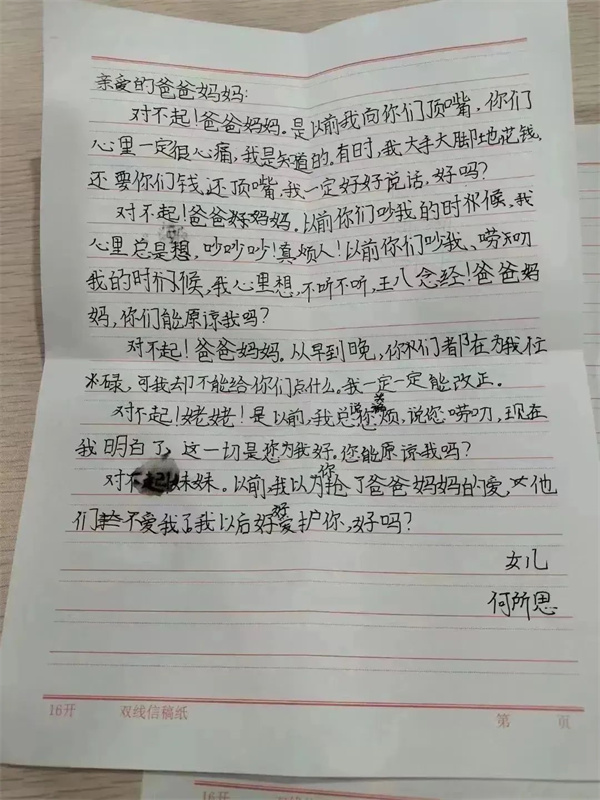 亲爱的爸爸妈妈:
对不起!爸爸妈妈。是以前我向你们顶嘴,你们
心里一定很心痛,我是知道的。有时,我大手大脚地花钱,
还要你们钱,还顶嘴,我一定好好说话,好吗?
对不起!爸爸妈妈。以前你们吵我的时候。我
心里总是想,吵吵吵!真烦人!以前你们吵我、唠叨
我的时候,我心里想,不听不听,王八念经!爸爸妈
妈,你们能原谅我吗?
对不起!爸爸妈妈。从早到晚,你们都在为我忙
碌,可我却不能给你们点什么。我一定一定能改正。
对不起!姥姥!是以前,我总说您烦,说您唠叨,现在
我明白了,这一切是您为我好。您能原谅我吗?
对不起妹妹。以前,我以为你抢了爸爸妈妈的爱,他
们不爱我了我以后好好爱护你,好吗?
女儿
何所思
16开 双线信稿纸 第 页
16开